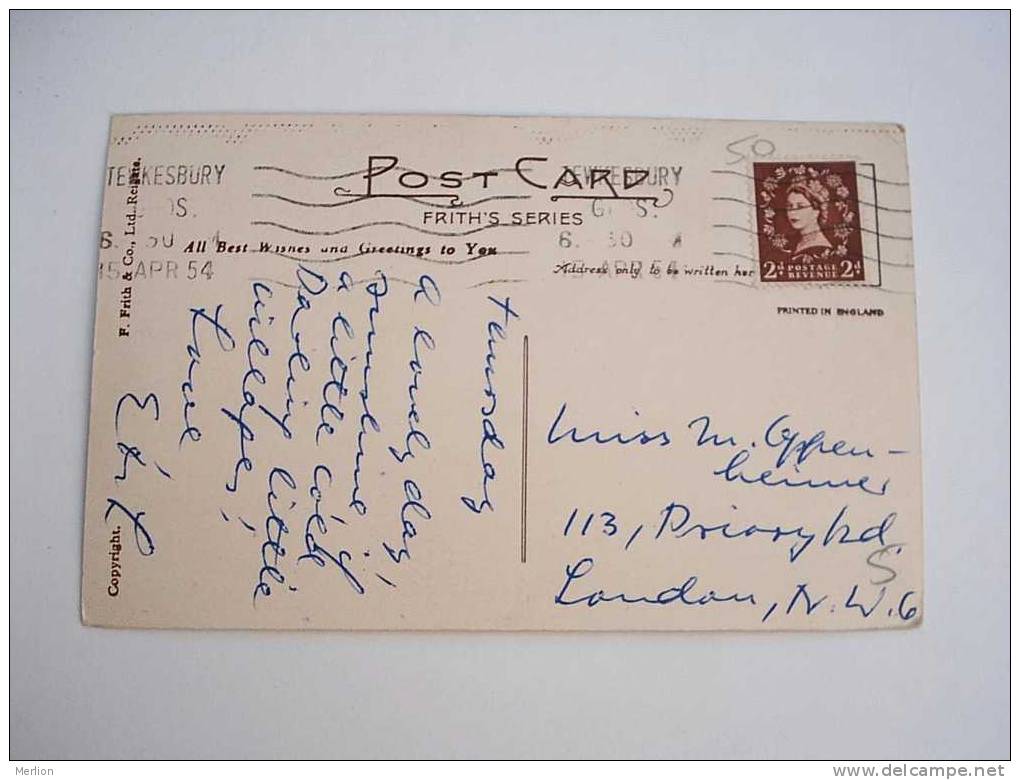 TEWKESBURY
6. 30 A
15 APR 54
POST CARD
FRITH'S SERIES
TEWKESBURY
GLOS.
6. 30 A
15 APR 54
50
2D POSTAGE REVENUE 2D
All Best Wishes and Greetings to You
Address only to be written her
PRINTED IN ENGLAND
F. Frith & Co., Ltd. Reigate.
Copyright.
Thursday
A lovely day,
Sunshine &
a little cold
Darling little
villages,
Love
Miss M. Oppen-
heimer
113, Priory Rd
London, N.W.6
S
Merlion
www.delcampe.net